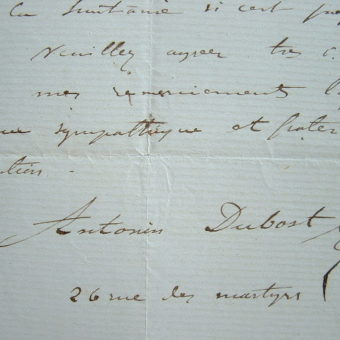 la
si c'est
Veuillez agréer très
mes remerciements
sympathique et frater
Antonin Dubost
26 rue des martyrs